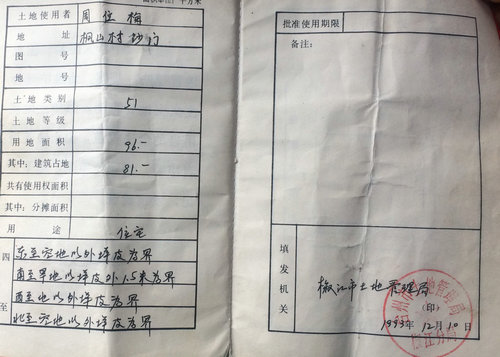 面积单位：平方米
土地使用者 周仕梅
地址 枫山村妙门
图号
地号
土地类别 51
土地等级
用地面积 96.-
其中：建筑占地 81.-
共有使用权面积
其中：分摊面积
用途 住宅
四至
东至空地以外墙皮为界
南至旱地以外墙皮外1.5米为界
西至地以外墙皮为界
北至空地以外墙皮为界
批准使用期限
备注：
填发机关
椒江市土地管理局
（印）
1993年12月10日